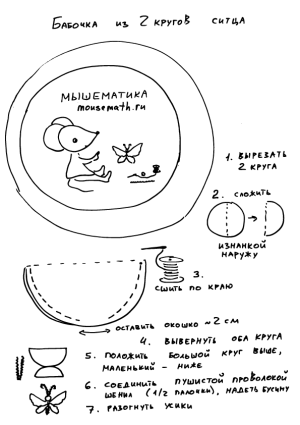 Бабочка из 2 кругов ситца
МЫШЕМАТИКА
mousemath.ru
1. ВЫРЕЗАТЬ
2 КРУГА
2. СЛОЖИТЬ
ИЗНАНКОЙ
НАРУЖУ
3.
СШИТЬ ПО КРАЮ
ОСТАВИТЬ ОКОШКО ~2 СМ
4. ВЫВЕРНУТЬ ОБА КРУГА
5. ПОЛОЖИТЬ БОЛЬШОЙ КРУГ ВЫШЕ,
МАЛЕНЬКИЙ - НИЖЕ
6. СОЕДИНИТЬ ПУШИСТОЙ ПРОВОЛОКОЙ
ШЕНИЛ (1/2 ПАЛОЧКИ), НАДЕТЬ БУСИНУ
7. РАЗОГНУТЬ УСИКИ